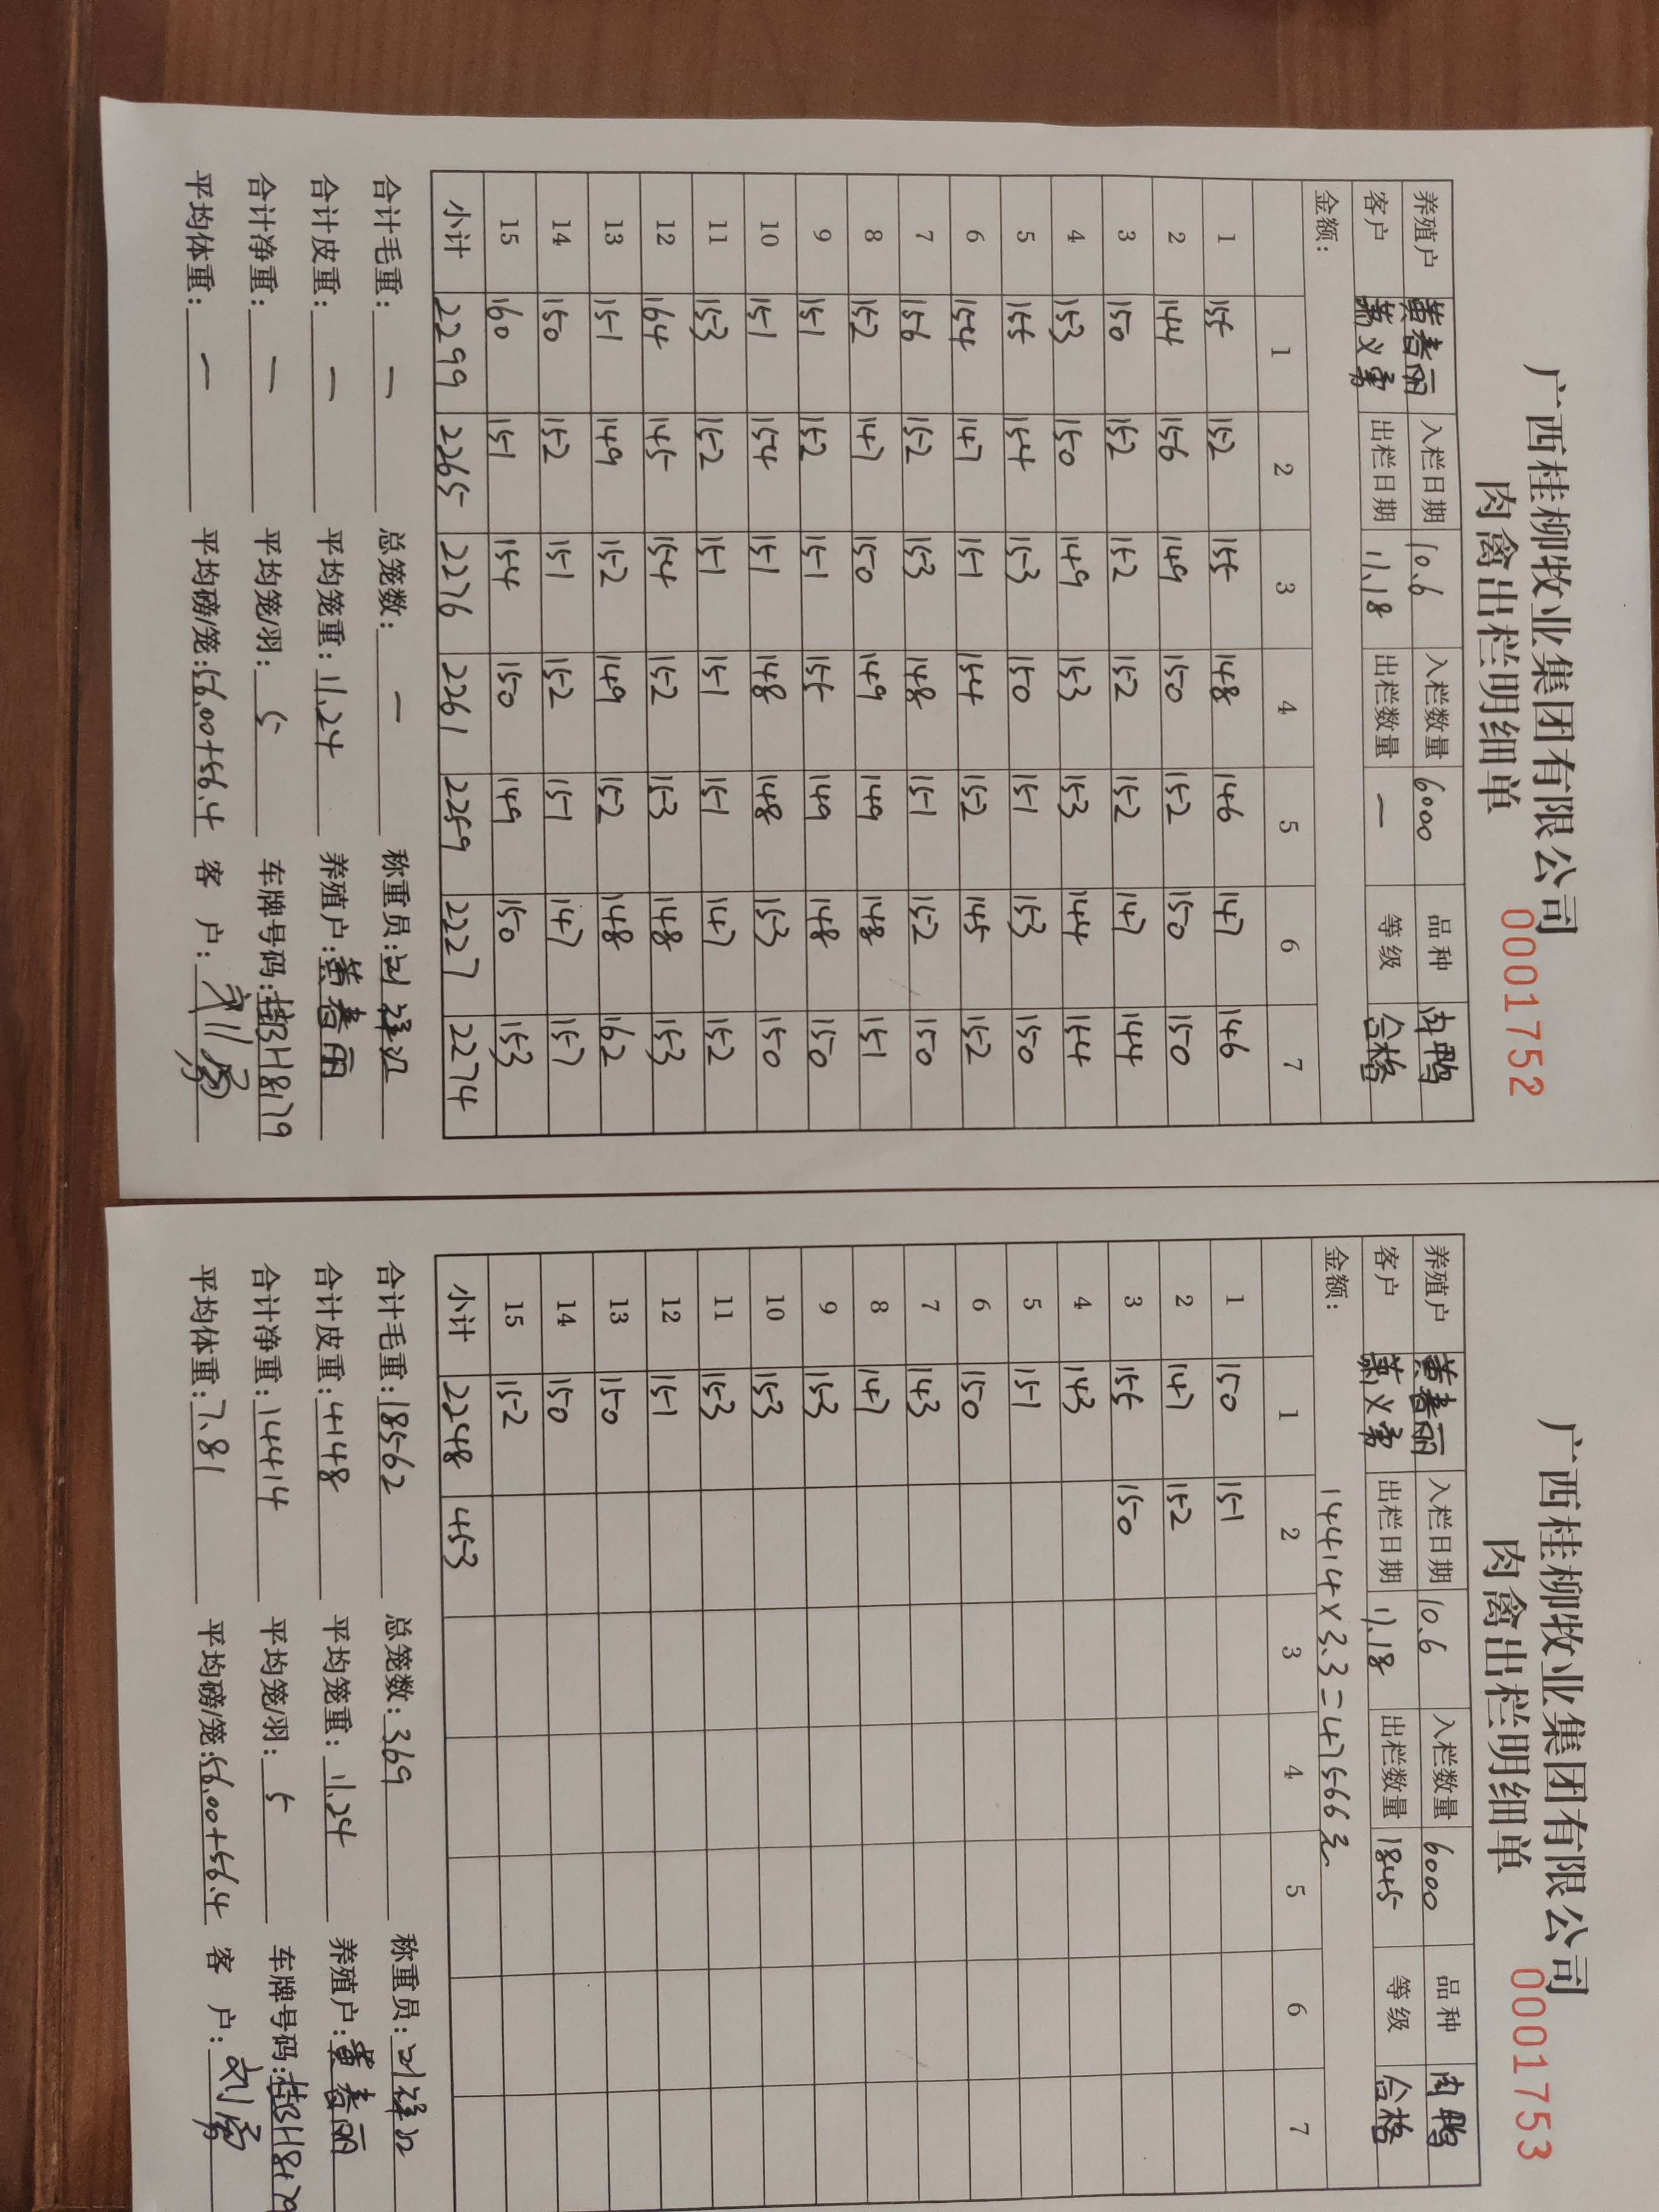 广西桂柳牧业集团有限公司
肉禽出栏明细单 0001752
养殖户 黄春丽 入栏日期 10.6 入栏数量 6000 品种 肉鸭
客户 出栏日期 11.18 出栏数量 — 等级 合格
金额:
1 2 3 4 5 6 7
1 155 152 155 148 146 147 146
2 144 156 149 150 152 150 150
3 150 152 152 152 152 147 144
4 153 150 149 153 153 144 154
5 155 154 153 150 151 153 150
6 154 147 151 154 152 145 152
7 156 152 153 148 151 152 150
8 152 147 150 149 149 148 151
9 151 152 151 155 149 148 150
10 151 154 151 148 148 153 150
11 153 152 151 151 151 147 152
12 164 145 154 152 153 148 153
13 151 149 152 149 152 148 162
14 150 152 151 152 151 147 157
15 160 151 154 150 149 150 153
小计 2299 2265 2276 2261 2259 2227 2274
合计毛重: — 总笼数: — 称重员:
合计皮重: — 平均笼重: 11.24 养殖户: 黄春丽
合计净重: — 平均笼/羽: 5 车牌号码: 桂BH8179
平均体重: — 平均磅/笼: 56.00+56.4 客 户:
广西桂柳牧业集团有限公司
肉禽出栏明细单 0001753
养殖户 黄春丽 入栏日期 10.6 入栏数量 6000 品种 肉鸭
客户 出栏日期 11.18 出栏数量 1845 等级 合格
金额: 14414×3.3=47566元
1 2 3 4 5 6 7
1 150 151
2 147 152
3 155 150
4 143
5 151
6 150
7 143
8 147
9 153
10 153
11 153
12 151
13 150
14 150
15 152
小计 2248 453
合计毛重: 18562 总笼数: 369 称重员:
合计皮重: 4148 平均笼重: 11.24 养殖户: 黄春丽
合计净重: 14414 平均笼/羽: 5 车牌号码: 桂BH8179
平均体重: 7.81 平均磅/笼: 56.00+56.4 客 户: